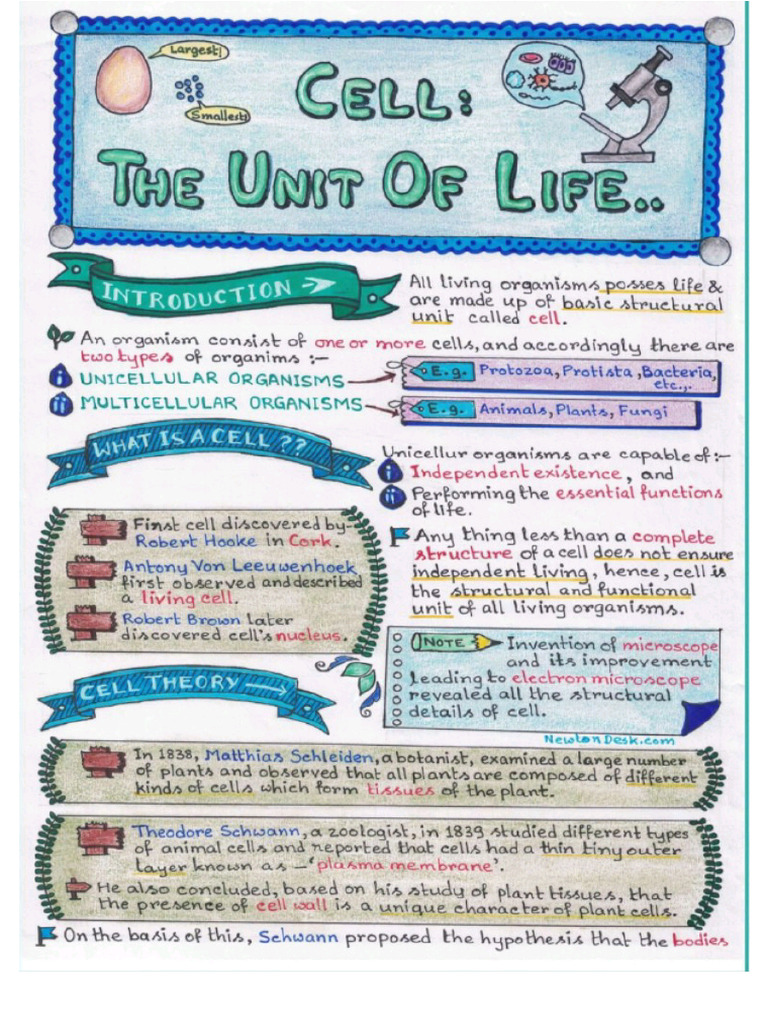 Largest!
Smallest!
CELL:
THE UNIT OF LIFE..
INTRODUCTION
All living organisms posses life &
are made up of basic structural
unit called cell.
An organism consist of one or more cells, and accordingly there are
two types of organims :-
i UNICELLULAR ORGANISMS
E.g. Protozoa, Protista, Bacteria,
etc.,.
ii MULTICELLULAR ORGANISMS
E.g. Animals, Plants, Fungi
WHAT IS A CELL ??
Unicellur organisms are capable of :-
i Independent existence, and
ii Performing the essential functions
of life.
First cell discovered by-
Robert Hooke in Cork.
Antony Von Leeuwenhoek
first observed and described
a living cell.
Robert Brown later
discovered cell's nucleus.
Any thing less than a complete
structure of a cell does not ensure
independent living, hence, cell is
the structural and functional
unit of all living organisms.
NOTE
Invention of microscope
and its improvement
leading to electron microscope
revealed all the structural
details of cell.
NewtonDesk.com
CELL THEORY
In 1838, Matthias Schleiden, a botanist, examined a large number
of plants and observed that all plants are composed of different
kinds of cells which form tissues of the plant.
Theodore Schwann, a zoologist, in 1839 studied different types
of animal cells and reported that cells had a thin tiny outer
layer known as - 'plasma membrane'.
He also concluded, based on his study of plant tissues, that
the presence of cell wall is a unique character of plant cells.
On the basis of this, Schwann proposed the hypothesis that the bodies